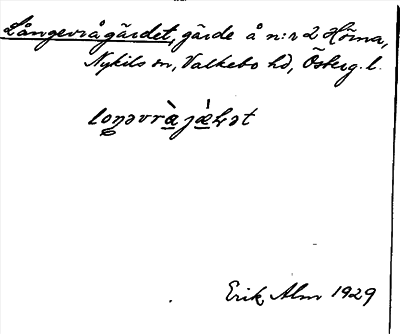 Långevrågärdet, gärde å n:r 2 Hörna,
Nykils sn, Valkebo hd, Österg. l.
loŋəvràjǽɫət
Erik Alm 1929